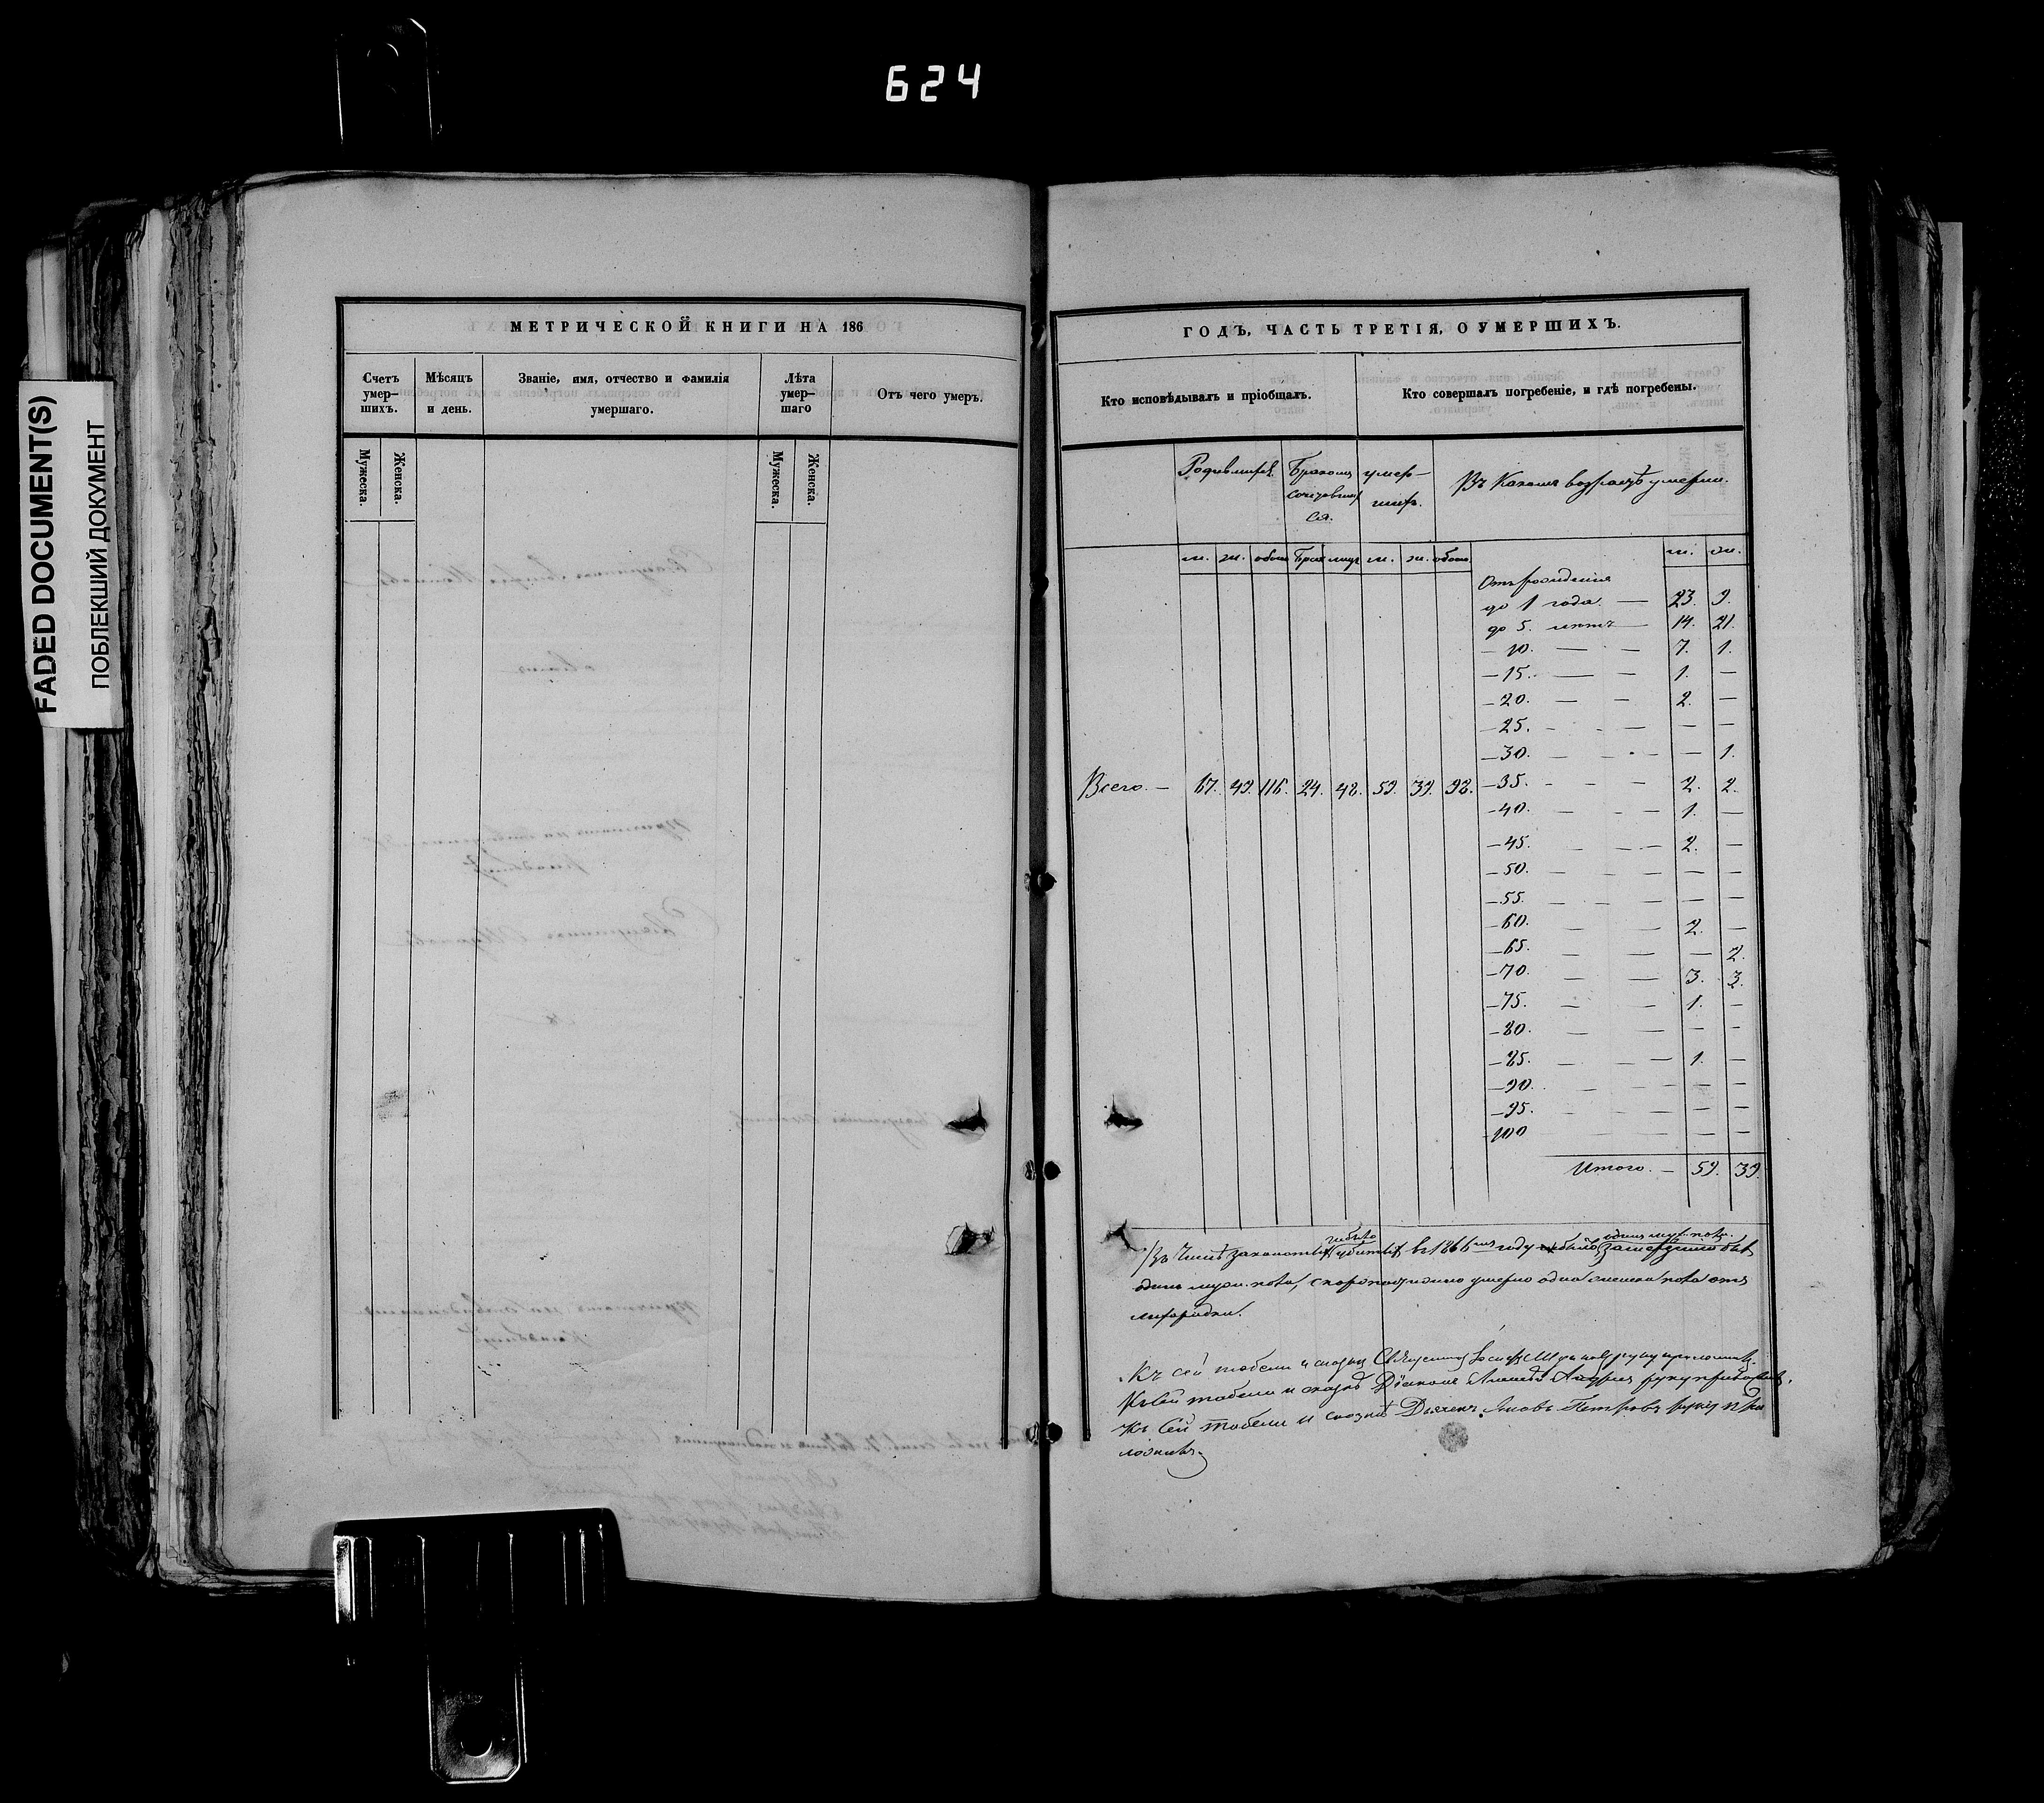 624
FADED DOCUMENT(S)
ПОБЛЕКШИЙ ДОКУМЕНТ
МЕТРИЧЕСКОЙ КНИГИ НА 186
Счетъ умер-шихъ.
Мѣсяцъ и день.
Званіе, имя, отчество и фамилія умершаго.
Лѣта умер-шаго
Отъ чего умеръ.
Мужеска.
Женска.
Мужеска.
Женска.
ГОДЪ, ЧАСТЬ ТРЕТІЯ, О УМЕРШИХЪ.
Кто исповѣдывалъ и пріобщалъ.
Кто совершалъ погребеніе, и гдѣ погребены.
Родившихся
Бракомъ сочетавшихся.
умер-шихъ.
Въ какомъ возрастѣ умерли.
м. ж. обоего Брак лицъ м. ж. обоего
м. ж.
Отъ рожденія
до 1 года. — 23. 9.
до 5. лѣтъ — 14. 21.
— 10. — — 7. 1.
— 15. — — 1. —
— 20. — — 2. —
— 25. — — — —
— 30. — — — 1.
Всего. — 67. 49. 116. 24. 48. 59. 39. 98.
— 35. — — 2. 2.
— 40. — — 1. —
— 45. — — 2. —
— 50. — — — —
— 55. — — — —
— 60. — — 2. —
— 65. — — — 2.
— 70. — — 3. 3.
— 75. — — 1. —
— 80. — — — —
— 85. — — 1. —
— 90. — — — —
— 95. — — — —
100 — — — —
Итого. — 59. 39.
Въ числѣ въ 1866 году
одинъ муж. пола, скоропостижно умерло одна женска пола отъ
лихорадки.
Къ сей табели Священникъ руку приложилъ.
Къ сей табели и Діаконъ Андрей руку приложилъ.
Къ сей табели и Дьячекъ Яковъ Петровъ руку при
ложилъ